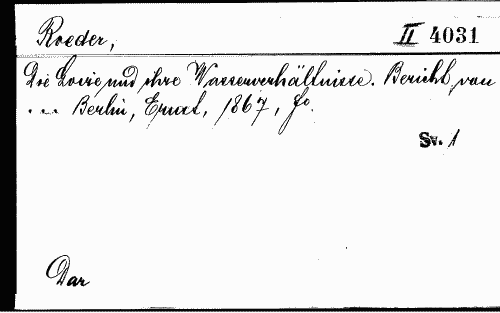 Roeder, II 4031
Die Loire und ihre Wasserverhältnisse. Bericht von
... Berlin, Ernst, 1867, fo.
Sv. 1
Dar